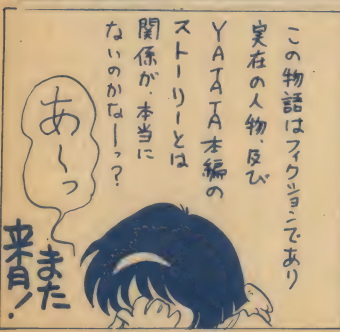 この物語はフィクションであり
実在の人物、及び
YATATA本編の
ストーリーとは
関係が、本当に
ないのかなーっ?
あ〜っ
また
来月!